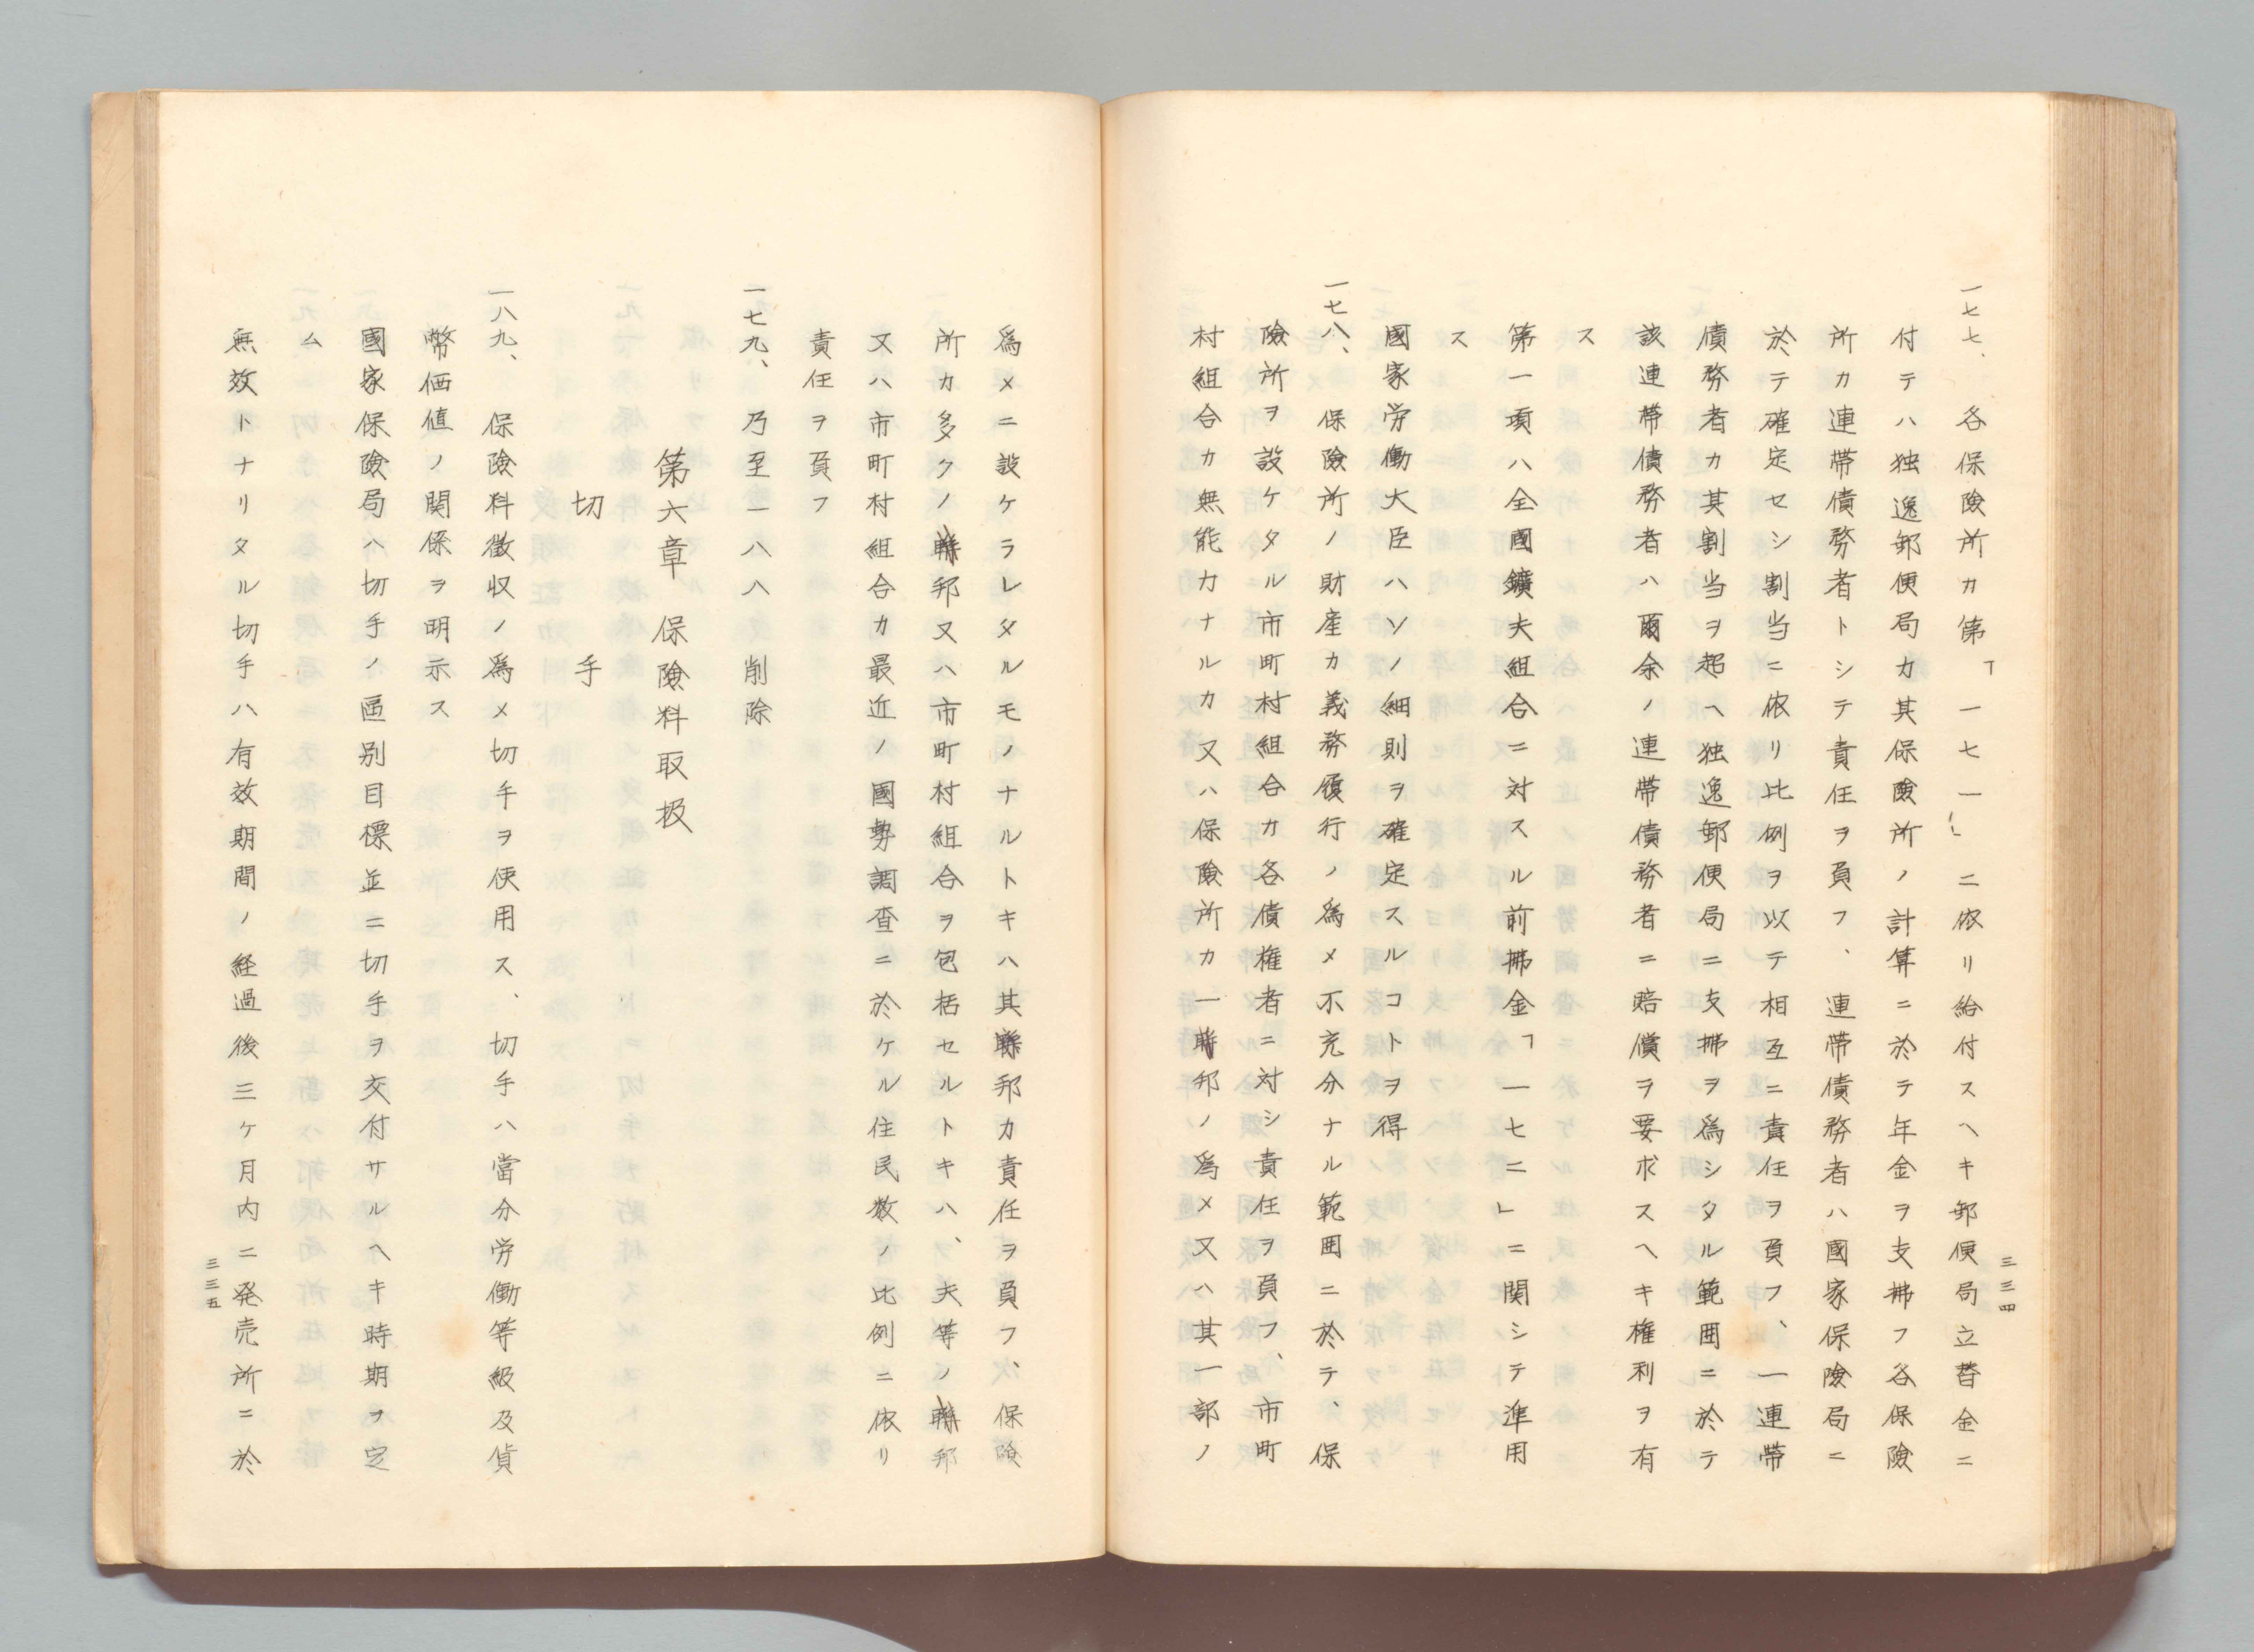 一七七、各保險所カ第「一七一」ニ依リ給付スヘキ郵便局立替金ニ
付テハ独逸郵便局カ其保險所ノ計算ニ於テ年金ヲ支拂フ各保險
所カ連帶債務者トシテ責任ヲ負フ、連帶債務者ハ國家保險局ニ
於テ確定セシ割当ニ依リ比例ヲ以テ相互ニ責任ヲ負フ、一連帶
債務者カ其割当ヲ超ヘ独逸郵便局ニ支拂ヲ為シタル範囲ニ於テ
該連帶債務者ハ爾余ノ連帶債務者ニ賠償ヲ要求スヘキ権利ヲ有
ス
第一項ハ全國鑛夫組合ニ対スル前拂金「一七二」ニ関シテ準用
ス
國家労働大臣ハソノ細則ヲ確定スルコトヲ得
一七八、保險所ノ財産カ義務履行ノ為メ不充分ナル範囲ニ於テ、保
險所ヲ設ケタル市町村組合カ各債権者ニ対シ責任ヲ負フ、市町
村組合カ無能力ナルカ又ハ保險所カ一聯邦ノ為メ又ハ其一部ノ
三三四
為メニ設ケラレタルモノナルトキハ其聯邦カ責任ヲ負フ、保險
所カ多クノ聯邦又ハ市町村組合ヲ包括セルトキハ、夫等ノ聯邦
又ハ市町村組合カ最近ノ國勢調査ニ於ケル住民数ノ比例ニ依リ
責任ヲ負フ
一七九、乃至一八八削除
第六章 保險料取扱
切手
一八九、保險料徴収ノ為メ切手ヲ使用ス、切手ハ當分労働等級及貨
幣価値ノ関係ヲ明示ス
國家保險局ハ切手ノ區別目標並ニ切手ヲ交付サルヘキ時期ヲ定
ム
無效トナリタル切手ハ有效期間ノ経過後三ケ月内ニ発売所ニ於
三三五